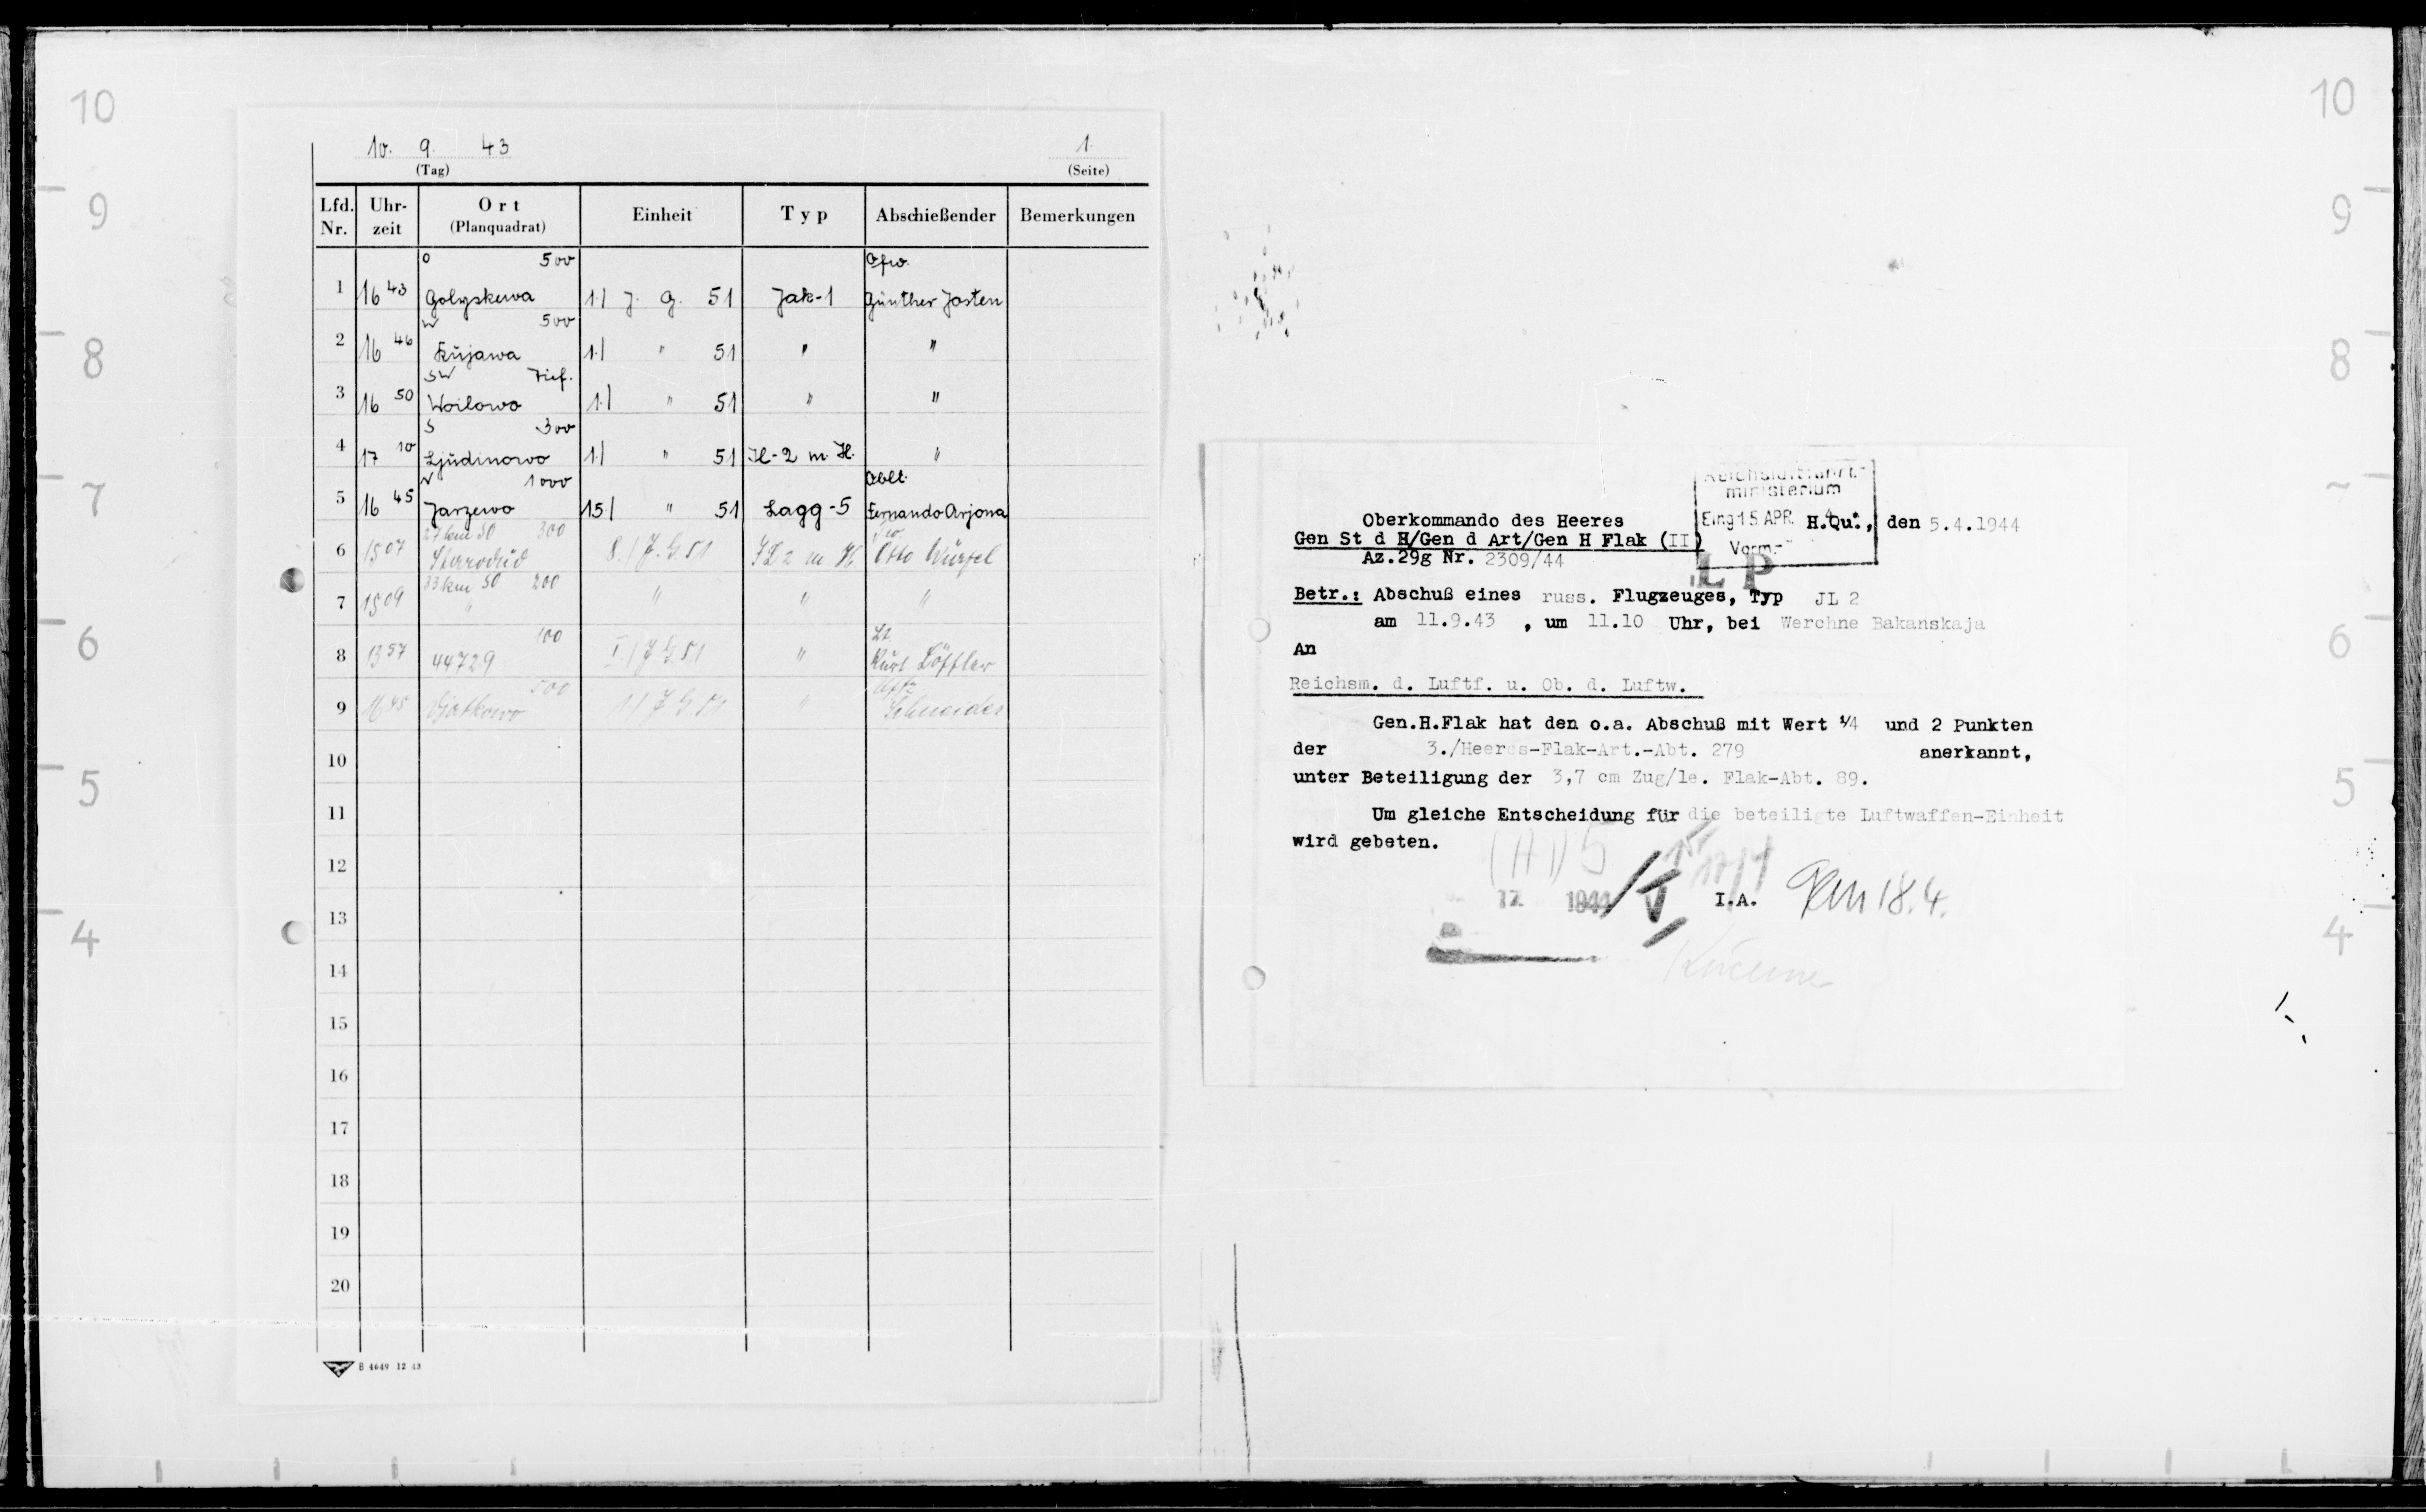 10 10
9 9
8 8
7
6 6
5 5
4 4
10. 9. 43
(Tag)
1.
(Seite)
Lfd. Nr. Uhr-zeit Ort (Planquadrat) Einheit Typ Abschießender Bemerkungen
O 500 Ofw.
1 16 43 Golyskewa 1./ J. G. 51 Jak-1 Günther Josten
W 500
2 16 46 Kujawa 1./ " 51 " "
SW Tief.
3 16 50 Woilowo 1./ " 51 " "
S 300
4 17 10 Ljüdinowo 1./ " 51 Il-2 m. H. "
1000 Oblt.
5 16 45 Jarzewo 15./ " 51 Lagg-5 Fernando Arjona
27 km SO 300
6 15 07 Starodub 8./J.G 51 IL 2 m H. Otto Würfel
33 km SO 200
7 15 09 " " " "
100 Lt.
8 13 57 44729 I./J.G.51 " Kurt Löffler
500 Uffz
9 16 45 1./J G 51 " Schneider
10
11
12
13
14
15
16
17
18
19
20
B 4649 12 43
Reichsluftfahrt-
ministerium
Eing 15 APR.
Vorm.-
Oberkommando des Heeres H.Qu., den 5.4.1944
Gen St d H/Gen d Art/Gen H Flak (II)
Az.29g Nr. 2309/44
LP
Betr.: Abschuß eines russ. Flugzeuges, Typ JL 2
am 11.9.43 , um 11.10 Uhr, bei Werchne Bakanskaja
An
Reichsm. d. Luftf. u. Ob. d. Luftw.
Gen.H.Flak hat den o.a. Abschuß mit Wert 1/4 und 2 Punkten
der 3./Heeres-Flak-Art.-Abt. 279 anerkannt,
unter Beteiligung der 3,7 cm Zug/le. Flak-Abt. 89.
Um gleiche Entscheidung für die beteiligte Luftwaffen-Einheit
wird gebeten.
1944
I.A. 18.4.